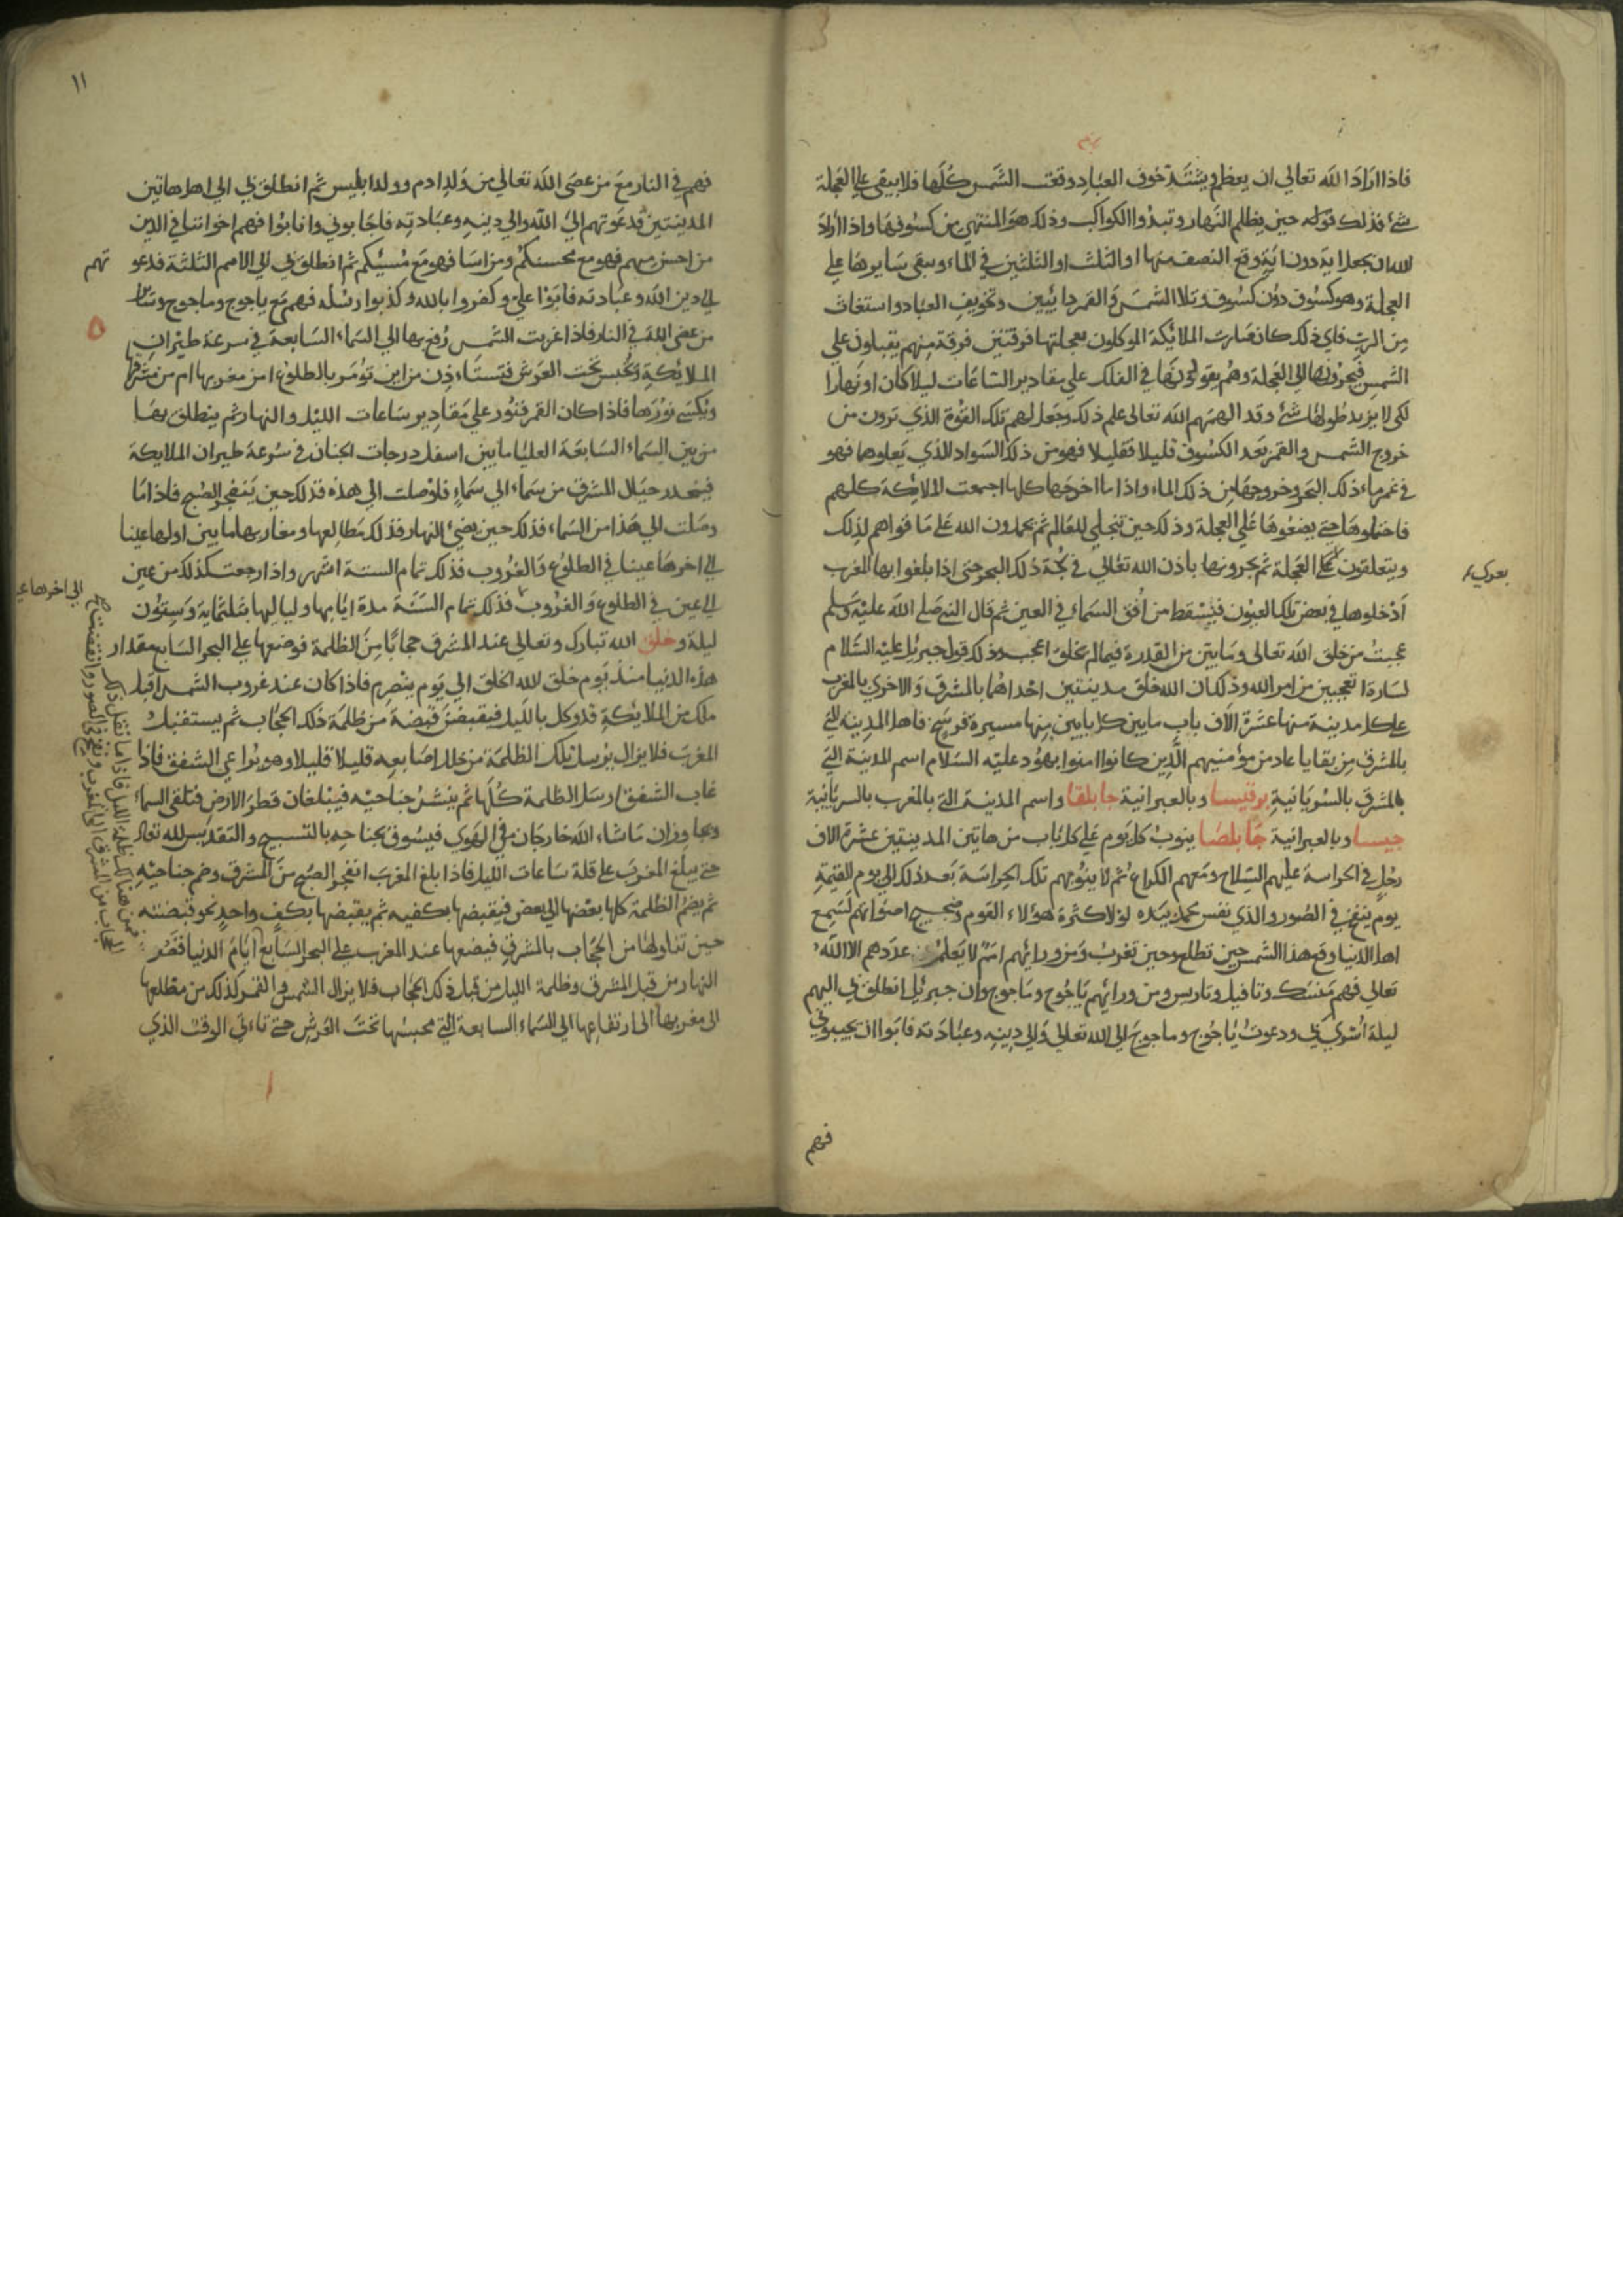 فاذا اراد الله تعالي ان يعظم ويشتد خوف العباد وقعت الشمس كلها فلا يبقي علي العجلة
شئ فذلك قوله حين يظلم النهار وتبدوا الكواكب وذلك هو المنتهي من كسوفها واذا اراد
الله ان يجعل اية دون اية وقع النصف منها او الثلث او الثلثين في الماء ويبقي سايرها علي
العجلة وهو كسوف دون كسوف وبلا الشمس والقمر وتخويف العباد واستغاث
من الرب فاي ذلك كان صارت الملائكة الموكلون بعجلتها فرقتين فرقة منهم يقبلون علي
الشمس فيجرونها الي العجلة وهم يقولونها في الفلك علي مقادير الساعات ليلا كان او نهارا
لكي لا يزيد طولها شئ وقد الهمهم الله تعالي علم ذلك وجعل لهم تلك القوة الذي ترون من
خروج الشمس والقمر بعد الكسوف قليلا فقليلا فهو من ذلك السواد الذي يعلوهما فهو
في غمر ماء ذلك البحر وخروجها من ذلك الماء واذا ما اخرجها كلها اجمعت الملائكة كلهم
فاحتملوها حتي يضعوها علي العجلة وذلك حين تنجلي للعالم ثم يحمدون الله علي ما قواهم لذلك
ويتعلقون بعري العجلة ثم يجرونها باذن الله تعالي في لجة ذلك البحر حتي اذا بلغوا بها المغرب
ادخلوها في بعض تلك العيون فيسقط من افق السماء في العين ثم قال النبي صلي الله عليه وسلم
عجبت من خلق الله تعالي وما بين من القدرة فيما لم يخلق اعجب وذلك قول جبرئيل عليه السلام
لسارة اتعجبين من امر الله وذلك ان الله خلق مدينتين احداهما بالمشرق والاخري بالمغرب
علي كل مدينة منها عشرة الاف باب ما بين كل بابين منها مسيرة فرسخ فاهل المدينة التي
بالمشرق من بقايا عاد من مؤمنيهم الذين كانوا امنوا بهود عليه السلام اسم المدينة التي
بالمشرق بالسريانية برقيسا وبالعبرانية جابلقا واسم المدينة التي بالمغرب بالسريانية
جيسا وبالعبرانية جابلصا ينوب كل يوم علي كل باب من هاتين المدينتين عشرة الاف
رجل في الحراسة عليهم السلاح ومعهم الكراع ثم لا ينوبهم تلك الحراسة بعد ذلك الي يوم القيمة
يوم ينفخ في الصور والذي نفس محمد بيده لولا كثرة هؤلاء القوم وضجيج اصواتهم لسمع
اهل الدنيا وقع هذا الشمس حين تطلع وحين تغرب ومن ورائهم امم لا يعلم عددهم الا الله
تعالي فهم منسك وتافيل وتاريس ومن ورائهم ياجوج وماجوج وان جبرئيل انطلق بي اليهم
ليلة اسري بي ودعوت ياجوج وماجوج الي الله تعالي والي دينه وعبادته فابوا ان يجيبوني
فهم
بعري
١١
فهم في النار مع من عصي الله تعالي من ولد ادم وولد ابليس ثم انطلق بي الي اهل هاتين
المدينتين فدعوتهم الي الله والي دينه وعبادته فاجابوني وانابوا فهم اخواننا في الدين
من احسن منهم فهو مع محسنكم ومن اسا فهو مع مسيئكم ثم انطلق بي الي الامم الثلثة فدعوتهم
الي دين الله وعبادته فابوا علي وكفروا بالله وكذبوا رسله فهم مع ياجوج وماجوج وسائر
من عصي الله في النار فاذا غربت الشمس رفع بها الي السماء السابعة في سرعة طيران
الملائكة وتحبس تحت العرش فتستاءذن من اين تؤمر بالطلوع امن مغربها ام من مشرقها
وتكسي نورها فاذا كان القمر فنور علي مقادير ساعات الليل والنهار ثم ينطلق بها
من بين السماء السابعة العليا ما بين اسفل درجات الجنان في سرعة طيران الملايكة
فينحدر حيال المشرق من سماء الي سماء فلو وصلت الي هذه فذلك حين ينفجر الصبح فاذا ما
وصلت الي هذا من السماء فذلك حين يضيئ النهار فذلك مطالعها ومغاربها ما بين اولها عينا
الي اخرها عينا في الطلوع والغروب فذلك تمام الستة اشهر واذا رجعت كذلك من عين
الي عين في الطلوع والغروب فذلك تمام السنة مدة ايامها ولياليها ثلثماية وستون
ليلة وخلق الله تبارك وتعالي عند المشرق حجابا من الظلمة فوضعها علي البحر السابع مقدار
هذه الدنيا منذ يوم خلق الله الخلق الي يوم ينصرم فاذا كان عند غروب الشمس اقبل
ملك من الملايكة قد وكل بالليل فيقبض قبضة من ظلمة ذلك الحجاب ثم يستقبل
المغرب فلا يزال يرسل تلك الظلمة من خلل اصابعه قليلا قليلا وهو يراعي الشفق فاذا
غاب الشفق ارسل الظلمة كلها ثم ينشر جناحيه فيبلغان قطر الارض فتلقي السماء
ويجاوزان ماشاء الله خارجان في الهوي فيسوق بجناحه بالتسبيح والتقديس لله تعالي
حتي يبلغ المغرب علي قلة ساعات الليل فاذا بلغ المغرب انفجر الصبح من المشرق وضم جناحيه
ثم يضم الظلمة كلها بعضها الي بعض فيقبضها بكفيه ثم يقبضها بكف واحد نحو قبضته
حين تناولها من الحجاب بالمشرق فيضعها عند المغرب علي البحر السابع ايام الدنيا
النهار من قبل المشرق وظلمة الليل من قبل ذلك الحجاب فلا يزال الشمس والقمر كذلك من مطلعها
الي مغربها الي ارتفاعها الي السماء السابعة التي محبسها تحت العرش حتي تاءتي الوقت الذي
الي اخرها عينا
فمن هناك ظلمة الليل فاذا ما انتقل ذلك
الحجاب من المشرق الي المغرب ونفخ في الصور وانقضت